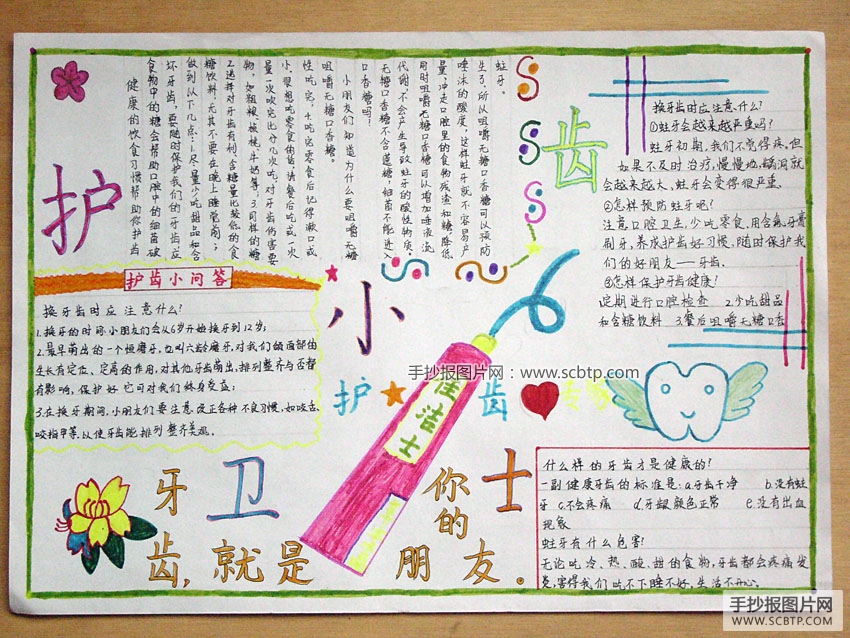 护
齿
小
卫
士
健康的饮食习惯帮助你护齿
食物中的糖会帮助口腔中的细菌破
坏牙齿，要随时保护我们的牙齿应
做到以下几点：1.尽量少吃甜品和含
糖饮料，尤其不要在晚上睡觉前；
2.选择对牙齿有利，含糖量比较低的食
物，如粗粮、核桃、牛奶等，3.同样的糖
量一次吃完比分几次吃，对牙齿伤害要
小，要想吃零食的话请餐后吃或一次
性吃完，4.吃完零食后记得漱口或
咀嚼无糖口香糖。
小朋友们知道为什么要咀嚼无糖
口香糖吗？
无糖口香糖不含蔗糖，细菌不能进入
代谢，不会产生导致蛀牙的酸性物质。
用时咀嚼无糖口香糖可以增加唾液流
量，冲走口腔里的食物残渣和糖，降低
唾沫的酸度，这样蛀牙就不容易产
生了，所以咀嚼无糖口香糖可以预防
蛀牙。
换牙齿时应注意什么？
①蛀牙会越来越严重吗？
蛀牙初期，我们不觉得疼，但
如果不及时治疗，慢慢地，龋洞就
会越来越大、蛀牙会变得很严重。
②怎样预防蛀牙呢？
注意口腔卫生，少吃零食、用含氟牙膏
刷牙，养成护齿好习惯，随时保护我
们的好朋友——牙齿。
③怎样保护牙齿健康！
定期进行口腔检查 2.少吃甜品
和含糖饮料 3.餐后咀嚼无糖口香
护齿小问答
换牙齿时应注意什么？
1.换牙的时间：小朋友们会从6岁开始换牙到12岁；
2.最早萌出的一个恒磨牙，也叫六龄磨牙，对我们颌面部的
生长有定位、定高的作用，对其他牙齿萌出，排列整齐与否都
有影响，保护好它可对我们终身受益；
3.在换牙期间，小朋友们要注意改正各种不良习惯，如咬舌、
咬指甲等，以使牙齿能排列整齐美观。
手抄报图片网：www.scbtp.com
佳洁士
护
齿
牙齿，就是你的朋友。
什么样的牙齿才是健康的？
一副健康牙齿的标准是：a.牙齿干净 b.没有蛀
牙 c.不会疼痛 d.牙龈颜色正常 e.没有出血
现象
蛀牙有什么危害？
无论吃冷、热、酸、甜的食物，牙齿都会疼痛发
炎，害得我们吃不下睡不好，生活不开心。
手抄报图片网
WWW.SCBTP.COM